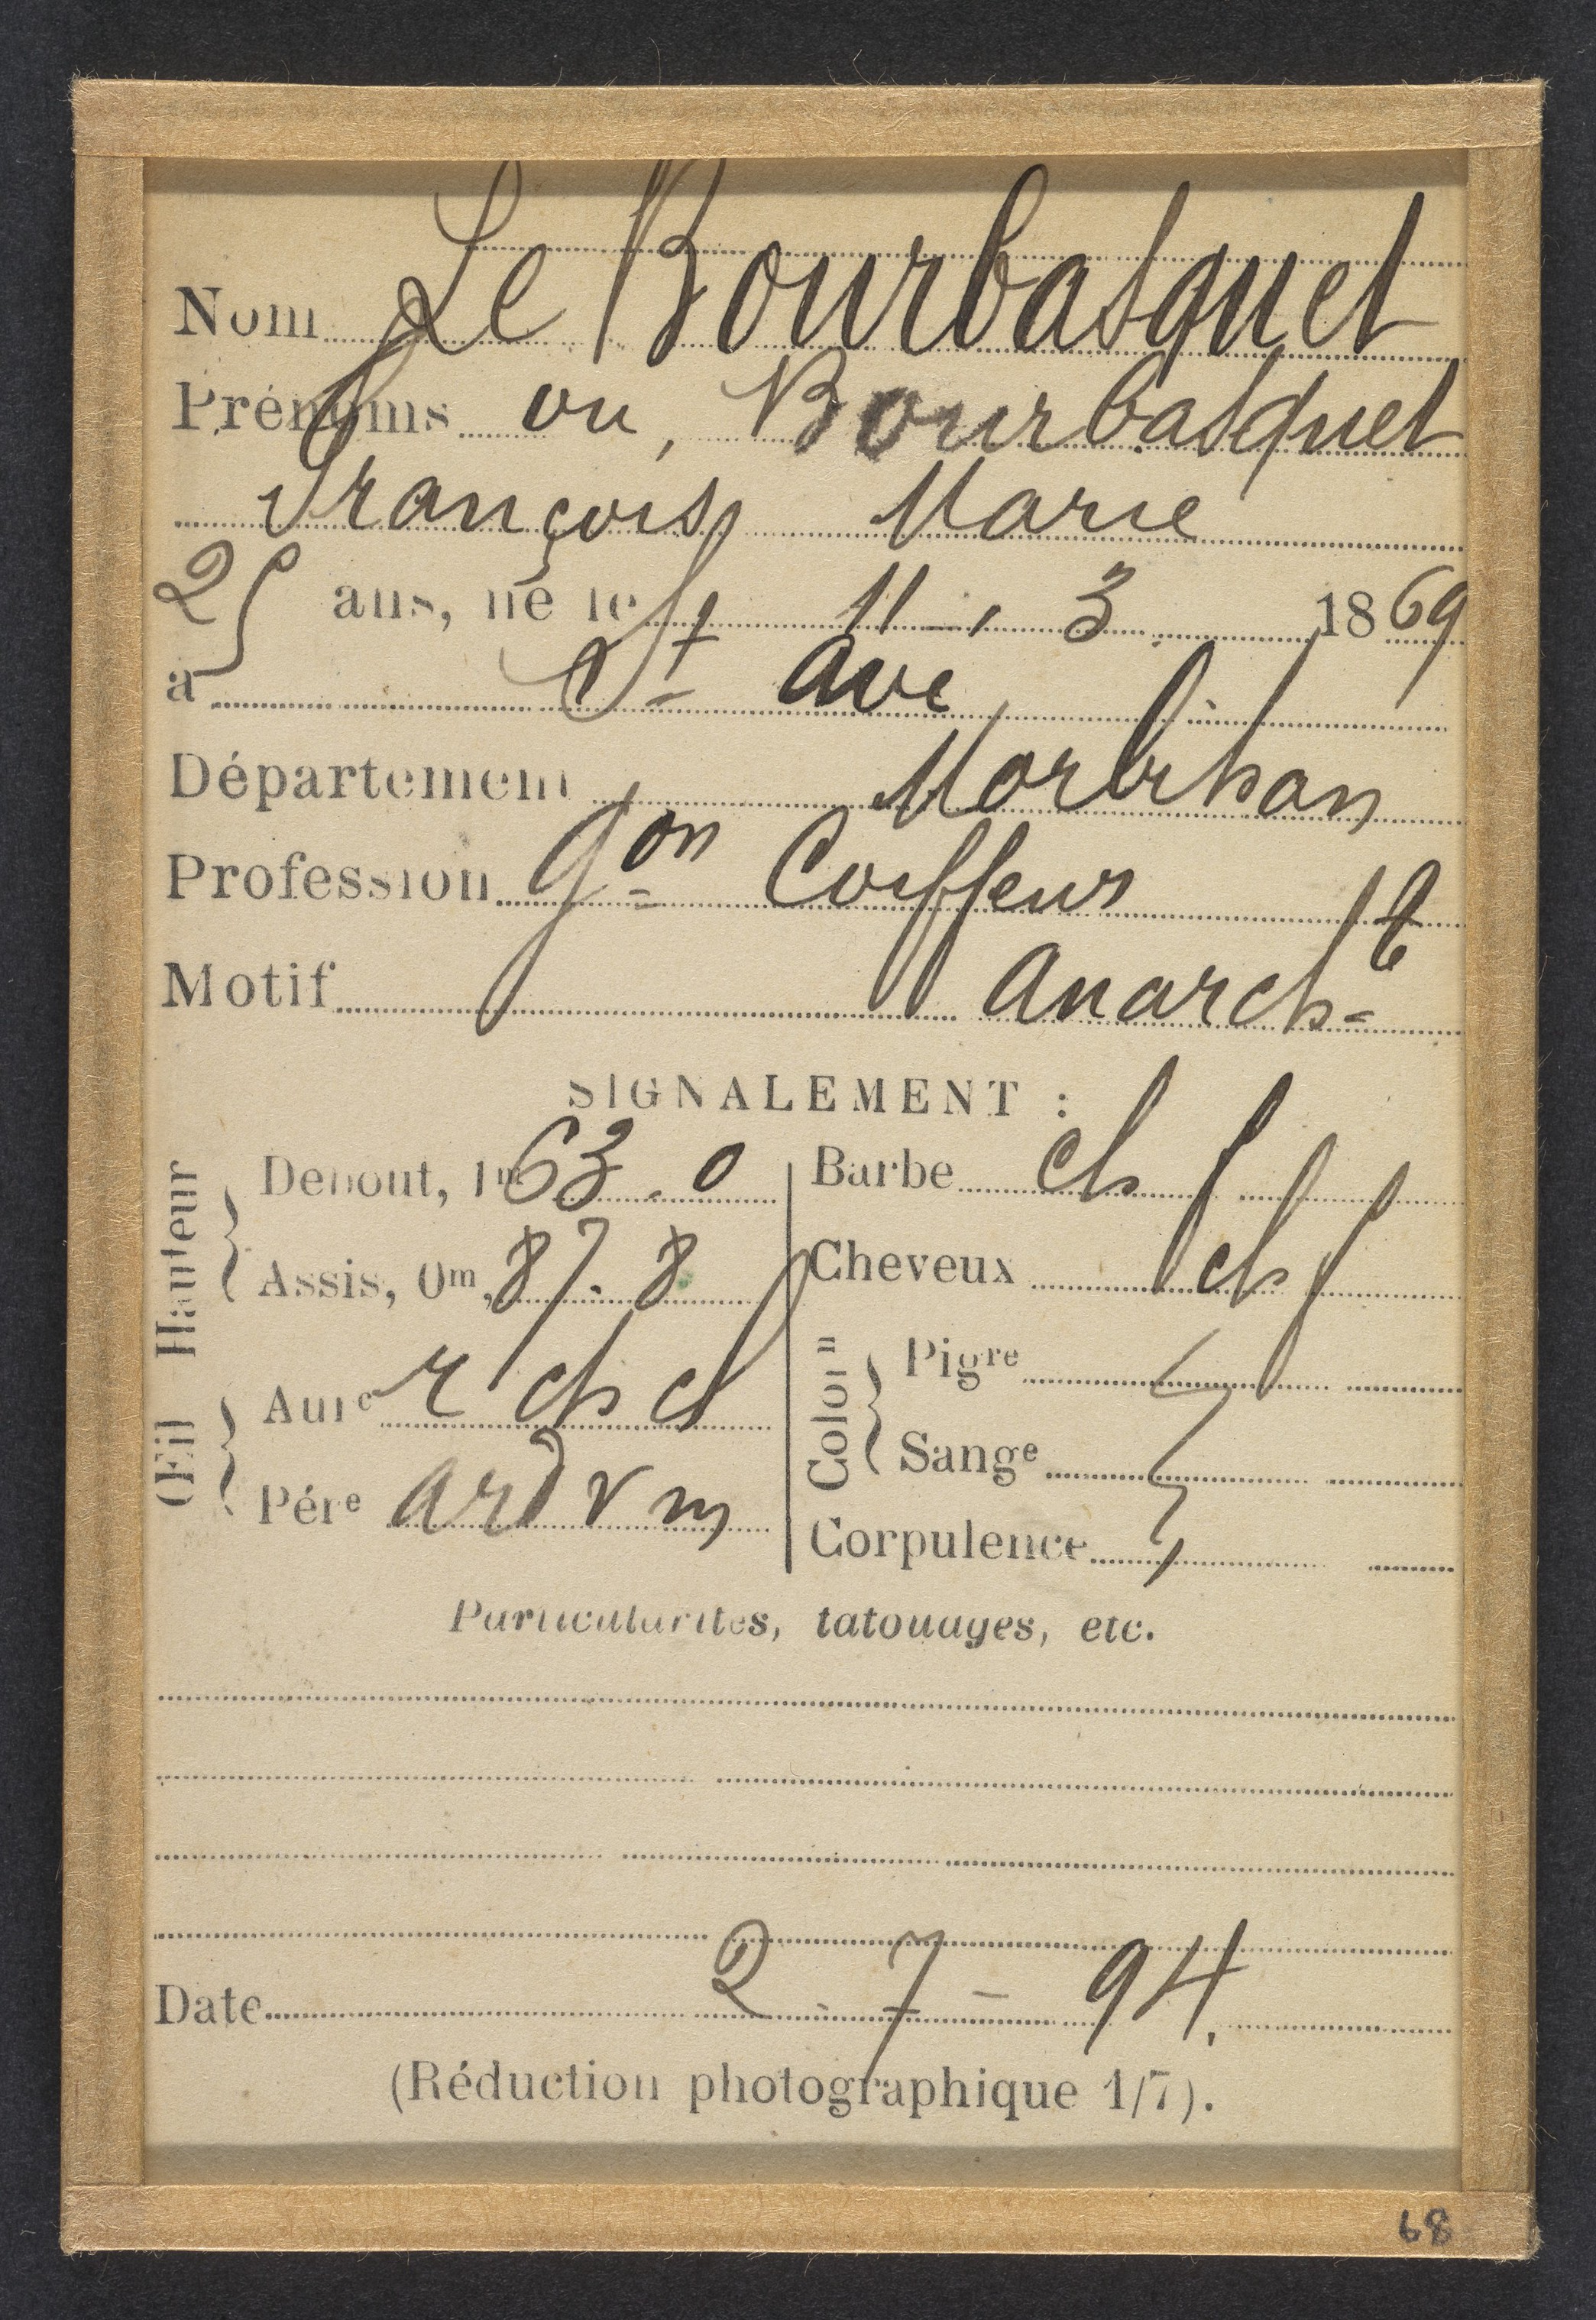 Nom Le Bourbasquet
Prénoms ou, Bourbasquet
François Marie
25 ans, né le 11 - 3 1869
à St Ave
Département Morbihan
Profession gon Coiffeur
Motif Anarchte
SIGNALEMENT :
Hauteur
Debout, 1m 63.0
Assis, 0m, 87.8
Œil
Aure r ch cl
Pére ard v m
Barbe ch f
Cheveux ch f
Colon
Pigre
Sange
Corpulence
Particularités, tatouages, etc.
Date 2 - 7 - 94.
(Réduction photographique 1/7).
68